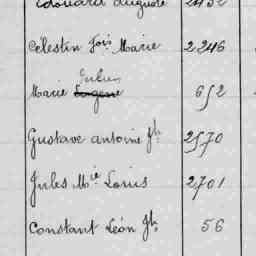 Edouard Auguste 2452
Célestin Fois Marie 2246
Julien
Marie Eugene 652
Gustave antoine Jh 2570
Jules Mie Louis 2701
Constant Léon Jh 56